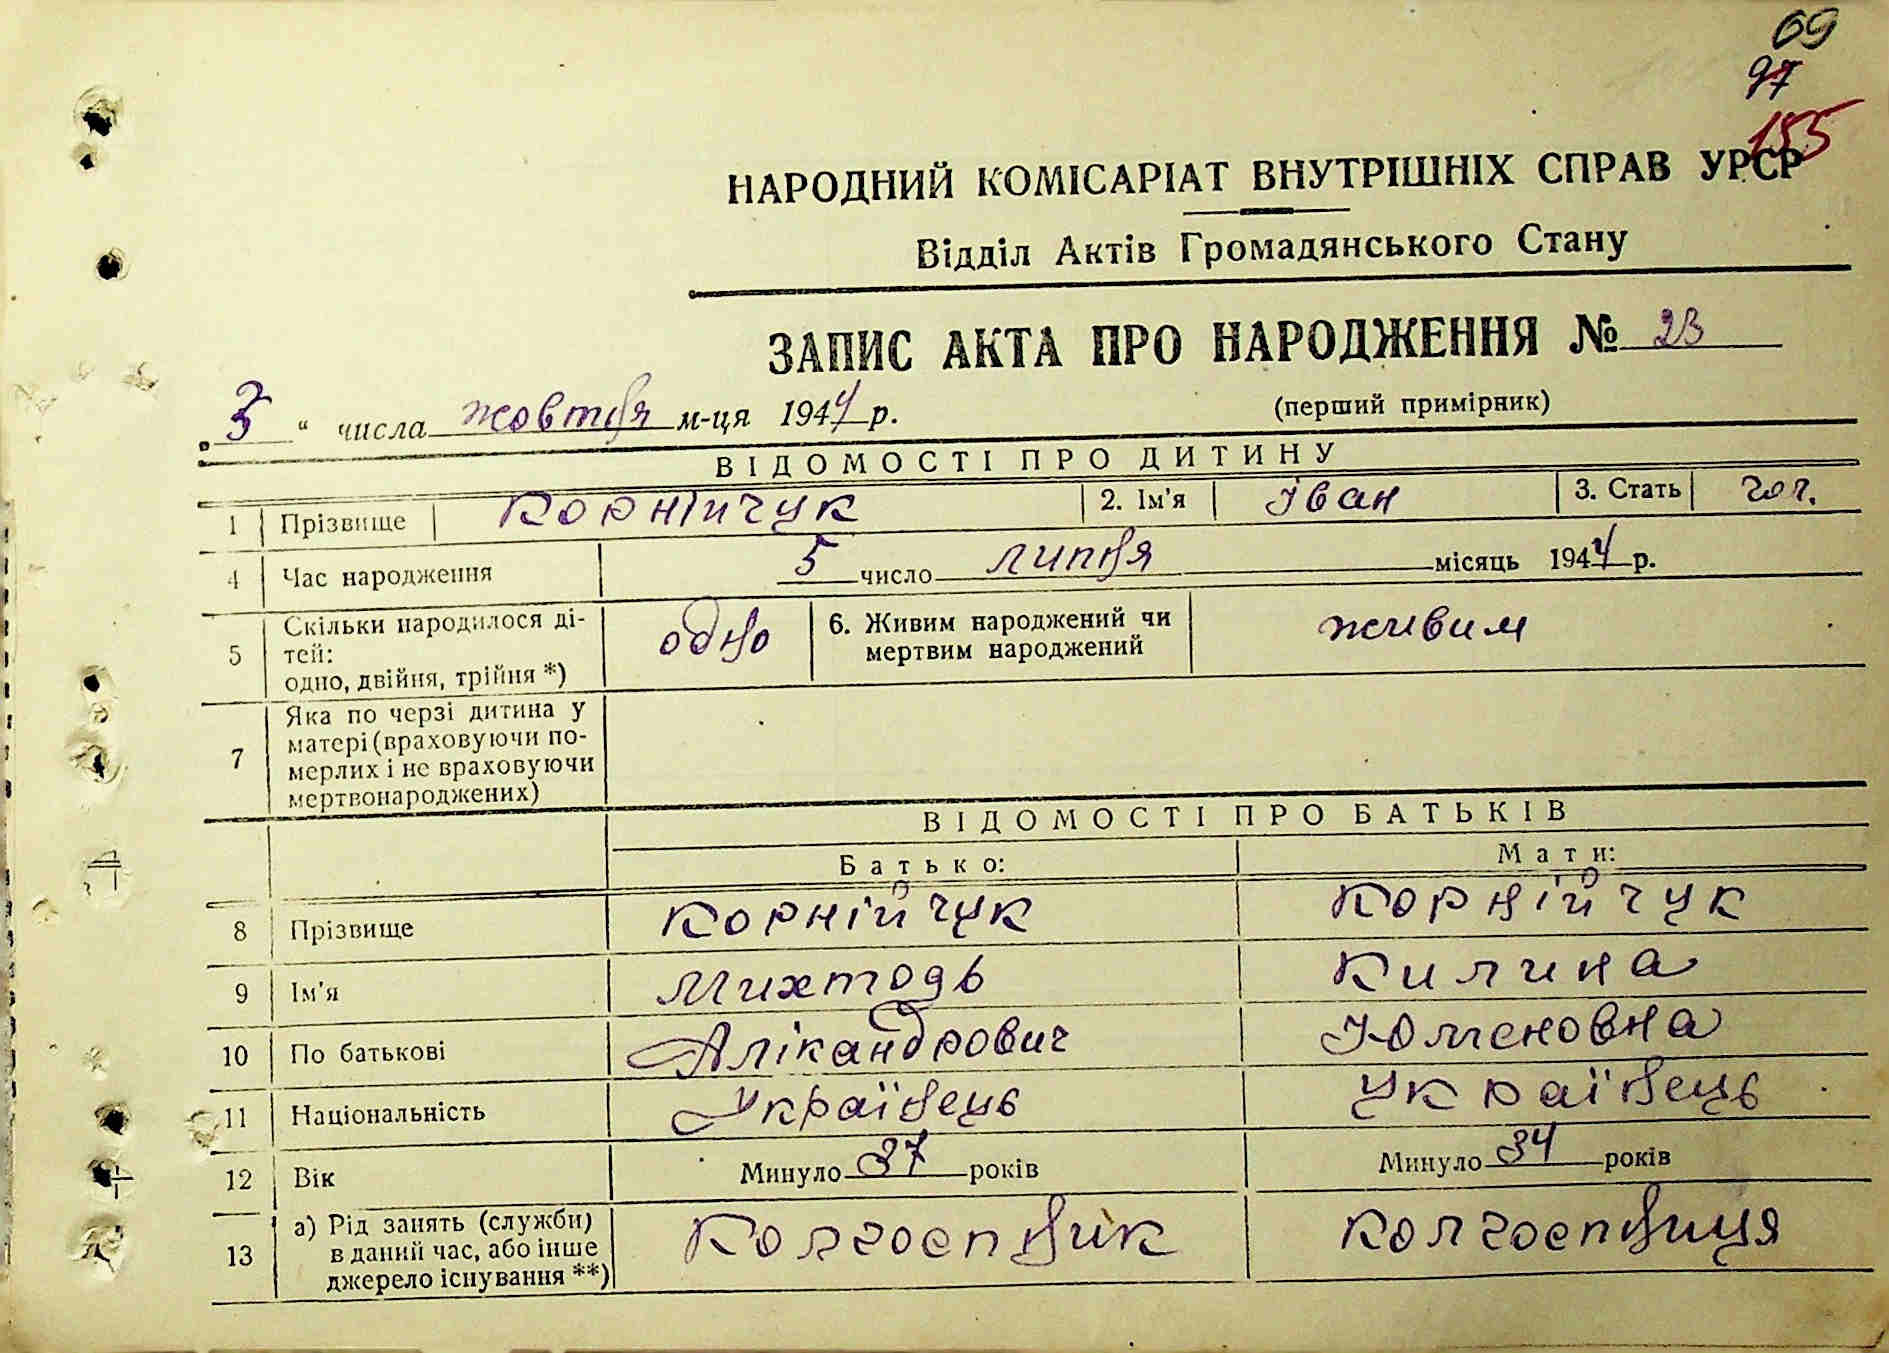 69
97
155
НАРОДНИЙ КОМІСАРІАТ ВНУТРІШНІХ СПРАВ УРСР
Відділ Актів Громадянського Стану
ЗАПИС АКТА ПРО НАРОДЖЕННЯ № 23
(перший примірник)
„ 3 “ числа жовтня м-ця 1944 р.
ВІДОМОСТІ ПРО ДИТИНУ
1 Прізвище Корнійчук 2. Ім'я Іван 3. Стать чол.
4 Час народження 5 число липня місяць 1944 р.
5 Скільки народилося ді-
тей:
одно, двійня, трійня *) одно 6. Живим народжений чи
мертвим народжений живим
7 Яка по черзі дитина у
матері (враховуючи по-
мерлих і не враховуючи
мертвонароджених)
ВІДОМОСТІ ПРО БАТЬКІВ
Батько: Мати:
8 Прізвище Корнійчук Корнійчук
9 Ім'я Михтодь Килина
10 По батькові Алікандрович Юхменовна
11 Національність Українець Українець
12 Вік Минуло 37 років Минуло 34 років
13 а) Рід занять (служби)
в даний час, або інше
джерело існування **) Колгоспник Колгоспниця